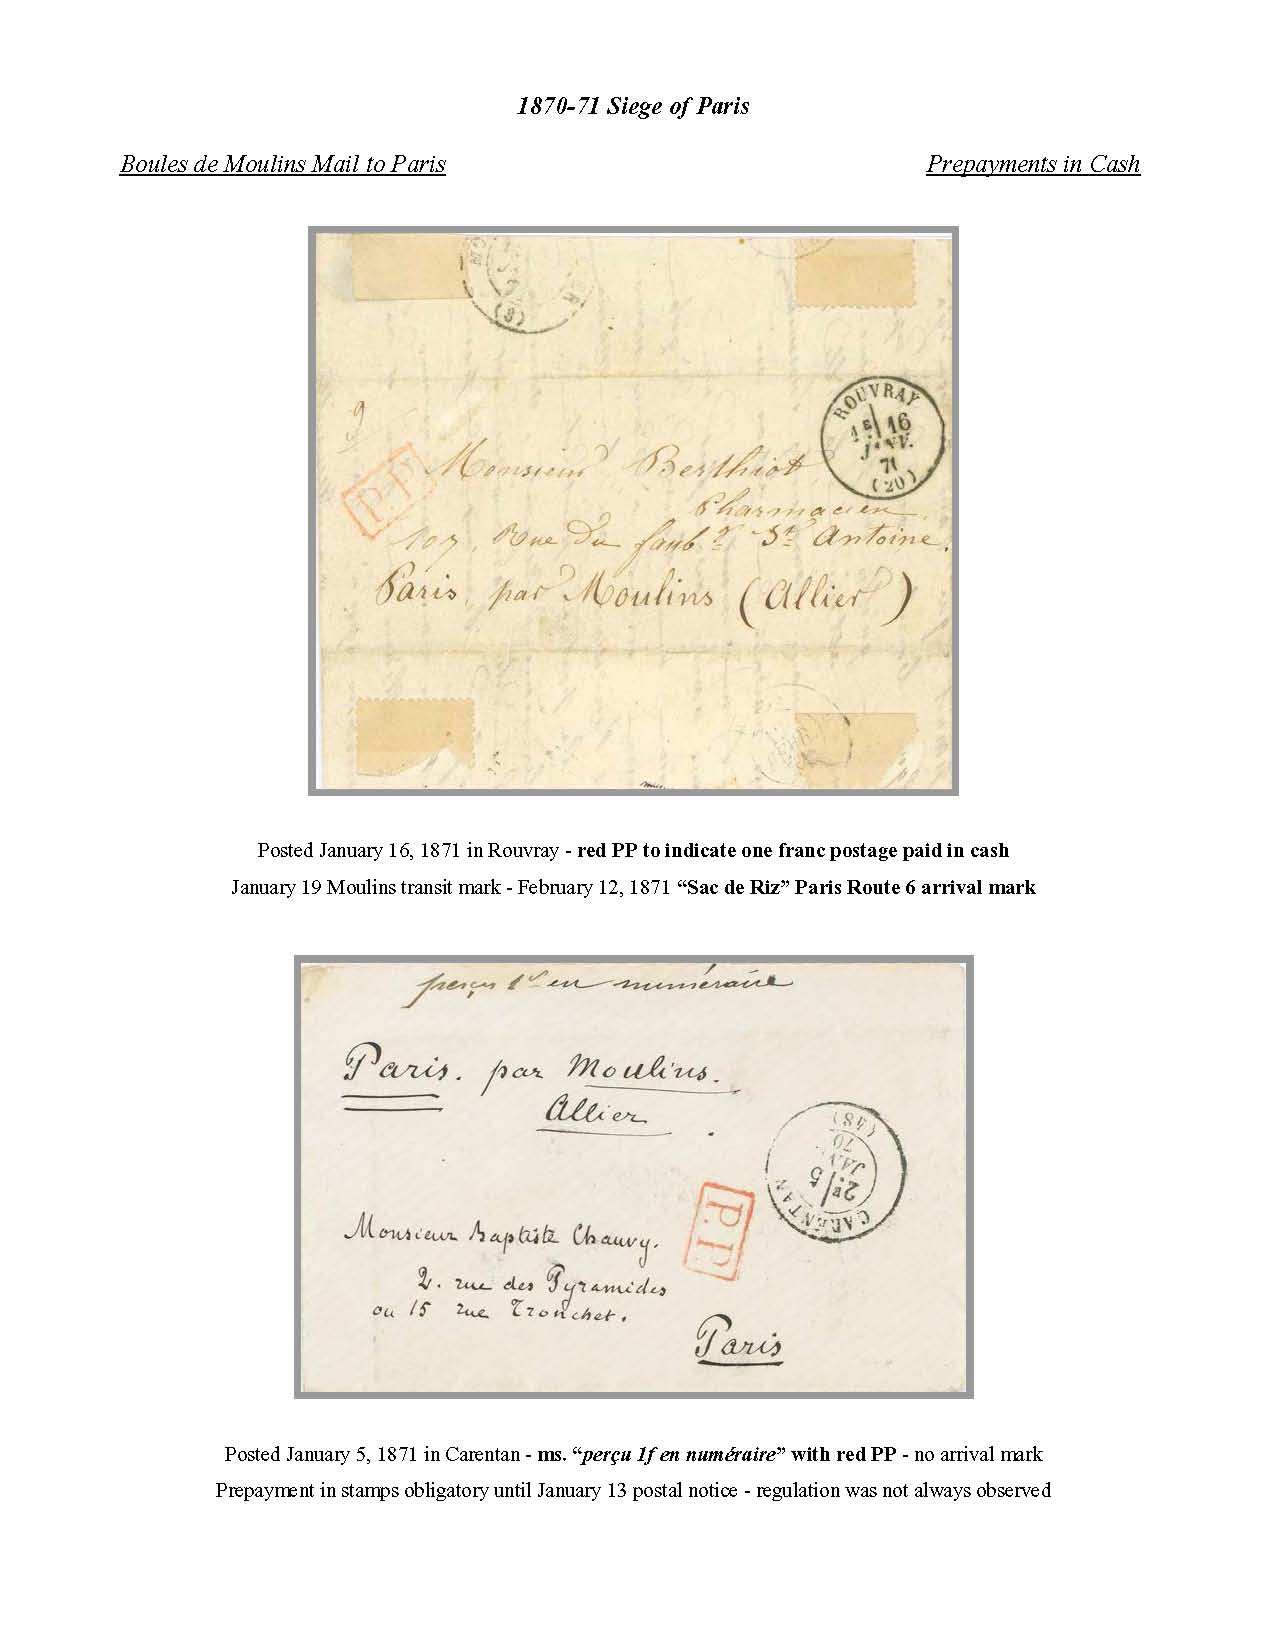 1870-71 Siege of Paris
Boules de Moulins Mail to Paris
Prepayments in Cash
(8)
ROUVRAY
1E 16
JANV.
71
(20)
P.P.
Monsieur Berthiot
Pharmacien
107, Rue du faubg St Antoine.
Paris, par Moulins (Allier)
Posted January 16, 1871 in Rouvray - red PP to indicate one franc postage paid in cash
January 19 Moulins transit mark - February 12, 1871 “Sac de Riz” Paris Route 6 arrival mark
perçu 1f en numéraire
Paris. par Moulins.
Allier
CARENTAN
2E 5
JANV.
70
(48)
P.P.
Monsieur Baptiste Chauvy.
2. rue des Pyramides
ou 15 rue Tronchet.
Paris
Posted January 5, 1871 in Carentan - ms. “perçu 1f en numéraire” with red PP - no arrival mark
Prepayment in stamps obligatory until January 13 postal notice - regulation was not always observed